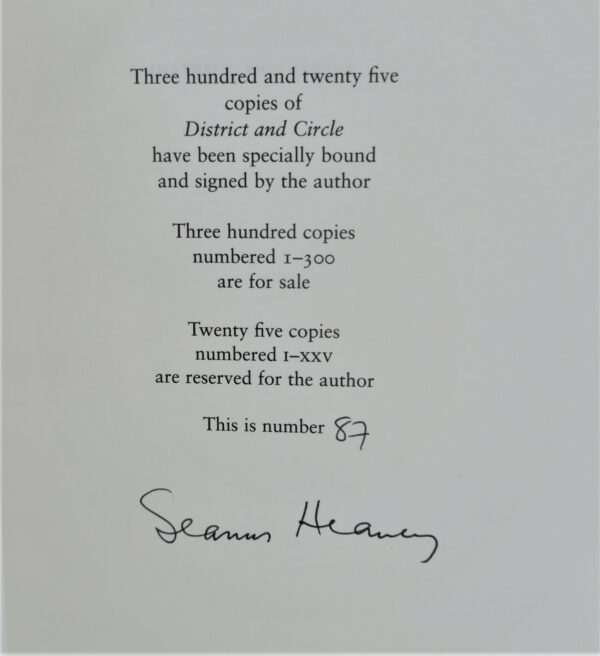 Three hundred and twenty five
copies of
District and Circle
have been specially bound
and signed by the author
Three hundred copies
numbered 1–300
are for sale
Twenty five copies
numbered I–XXV
are reserved for the author
This is number 87
Seamus Heaney